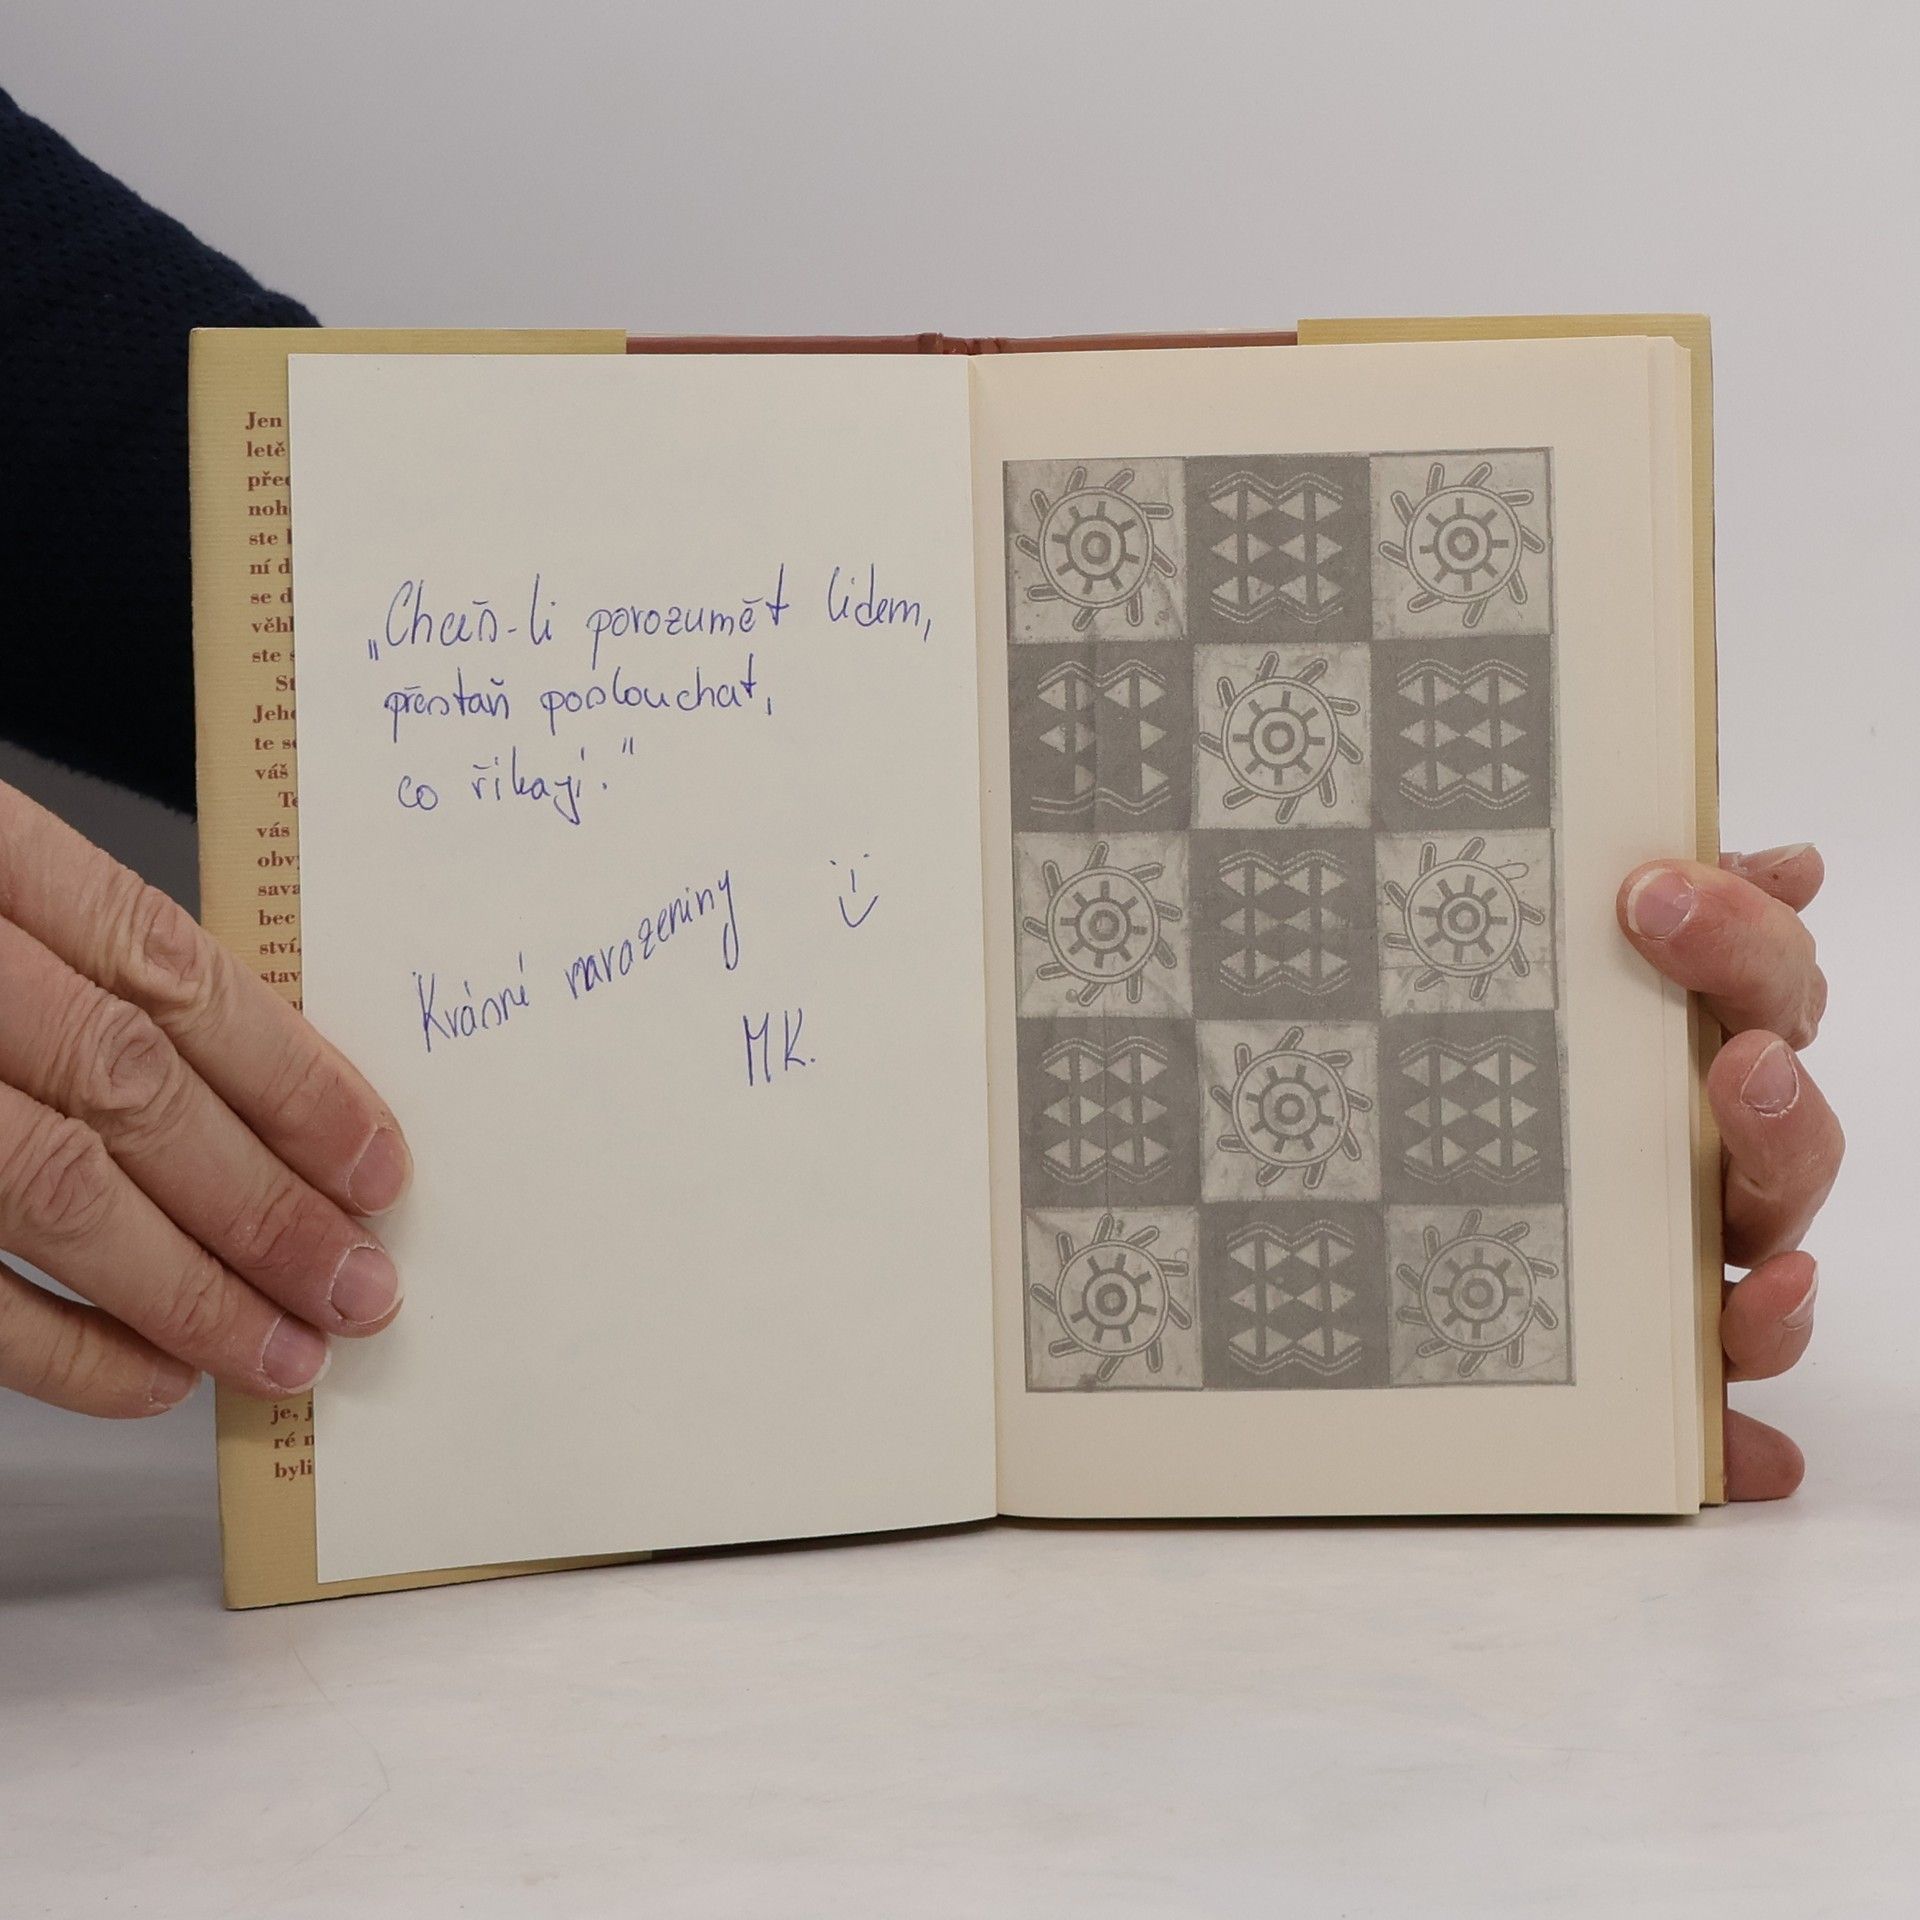 Jen
letě
před
noh
ste l
ní d
se d
věhl
ste s
St
Jeho
te se
váš
Te
vás
obvy
sava
bec
ství,
stav
je, j
ré n
byli
„Chceš-li porozumět lidem,
přestaň poslouchat,
co říkají."
Krásné narozeniny
MK.